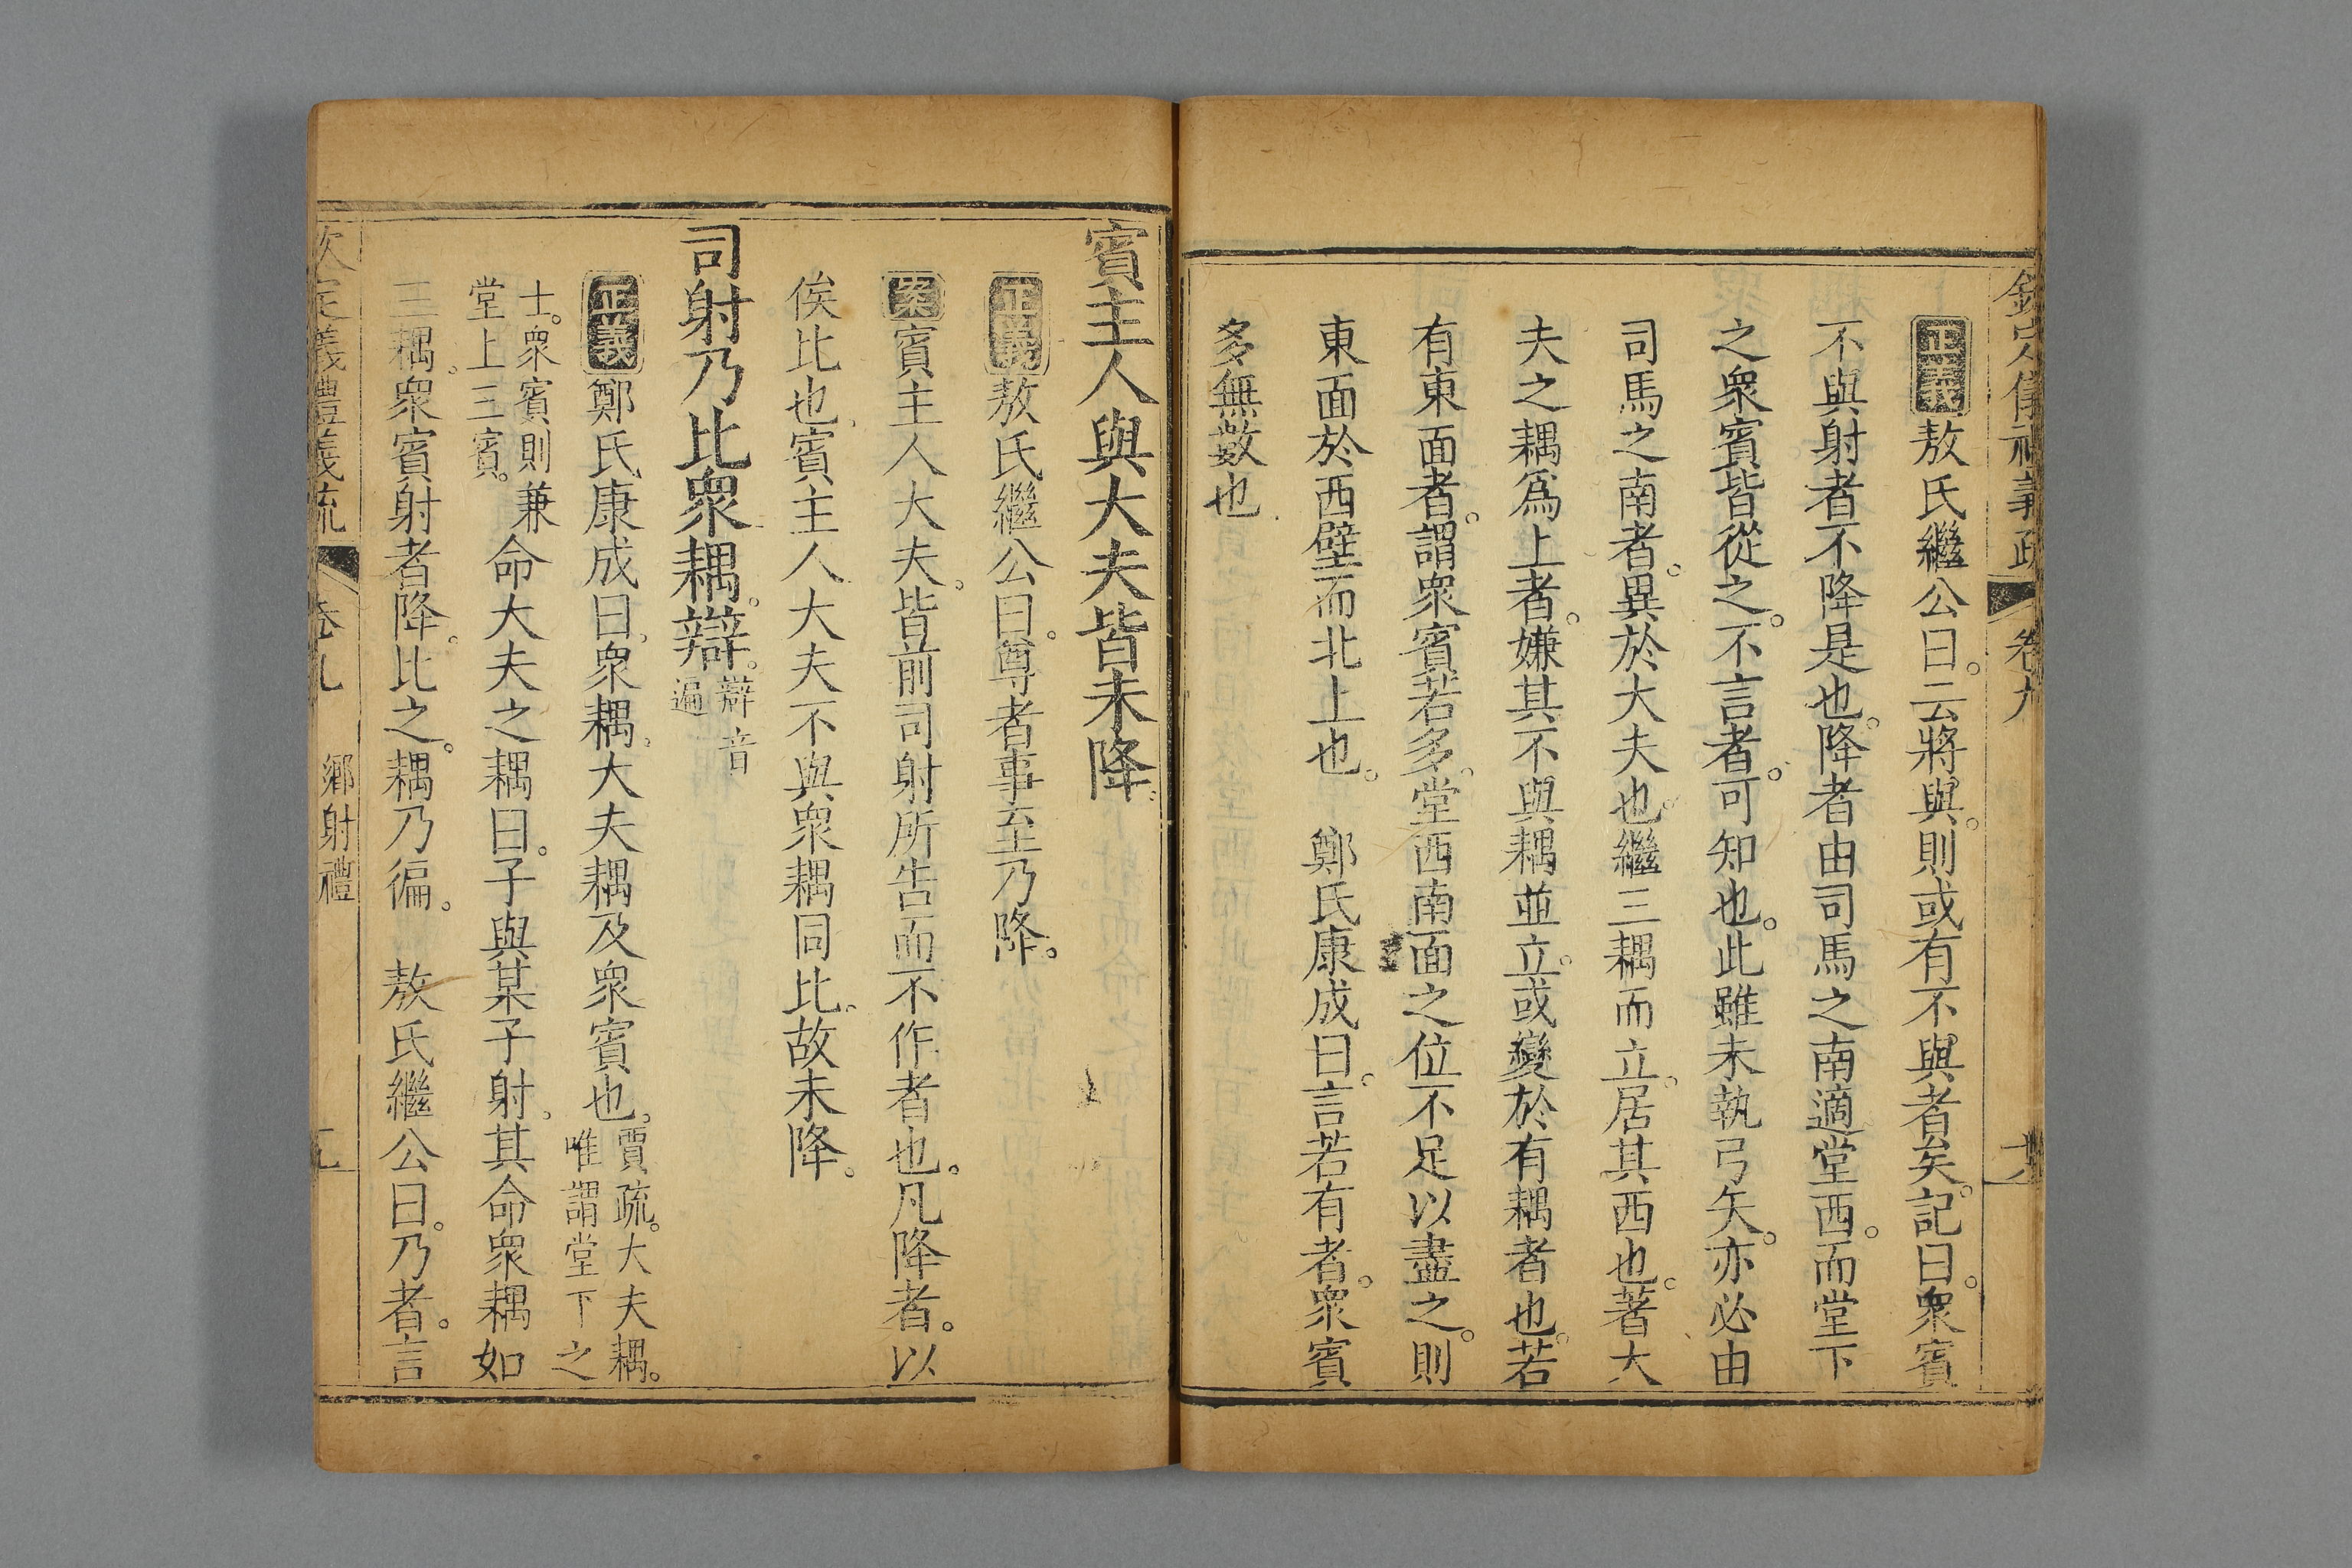 欽定儀禮義疏 卷九
正義敖氏繼公曰。云將與。則或有不與者矣。記曰。衆賓
不與射者不降是也。降者由司馬之南適堂西。而堂下
之衆賓皆從之。不言者。可知也。此雖未執弓矢。亦必由
司馬之南者。異於大夫也。繼三耦而立。居其西也。著大
夫之耦爲上者。嫌其不與耦並立。或變於有耦者也。若
有東面者。謂衆賓若多。堂西南面之位不足以盡之。則
東面於西壁而北上也。 鄭氏康成曰。言若有者。衆賓
多無數也
賓主人與大夫皆未降。
正義敖氏繼公曰。尊者事至乃降。
案賓主人大夫。皆前司射所告而不作者也。凡降者。以
俟比也。賓主人大夫不與衆耦同比。故未降。
司射乃比衆耦。辯。辯音
遍
正義鄭氏康成曰。衆耦。大夫耦及衆賓也。賈疏。大夫耦。
唯謂堂下之
士。衆賓則兼
堂上三賓。命大夫之耦曰。子與某子射。其命衆耦如
三耦。衆賓射者降。比之。耦乃徧。 敖氏繼公曰。乃者。言
義禮義疏 鄉射禮